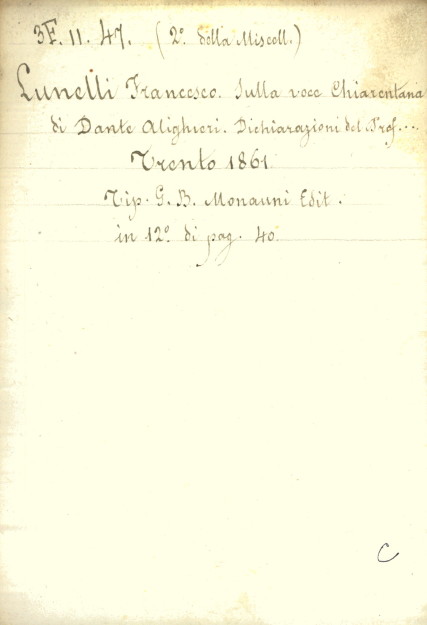 3F. 11. 47. (2º. della Miscell.)
Lunelli Francesco. Sulla voce Chiarentana
di Dante Alighieri. Dichiarazioni del Prof....
Trento 1861
Tip. G. B. Monauni Edit.
in 12º di pag. 40.
C